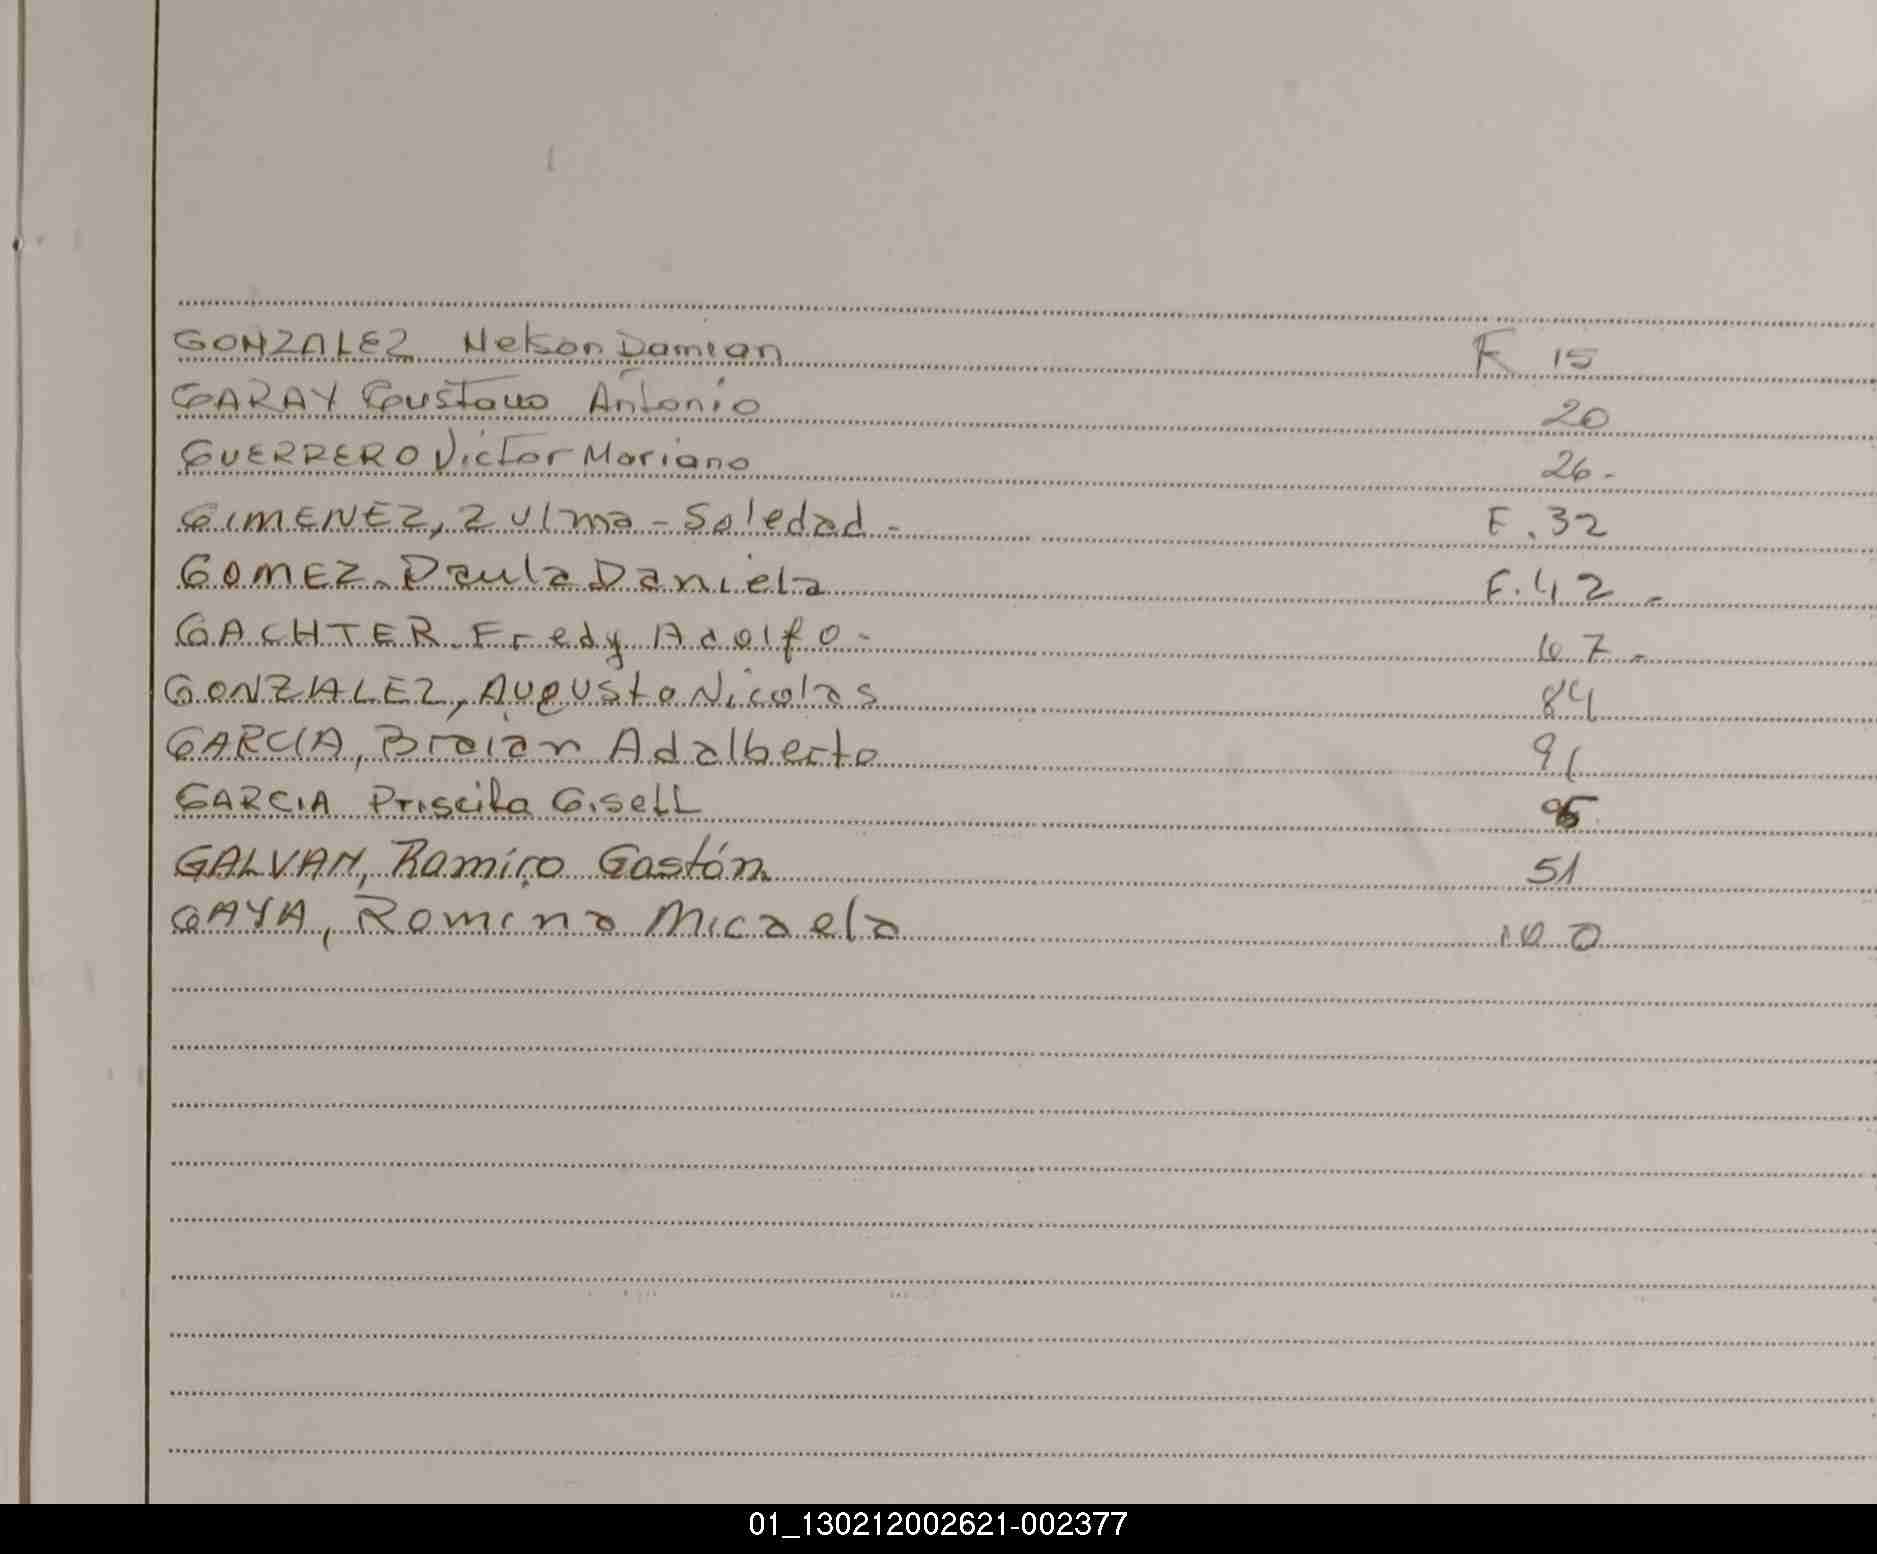 GONZALEZ Nelson Damian F 15
GARAY Gustavo Antonio 20
GUERRERO Victor Mariano 26-
GIMENEZ, Zulma-Soledad- F.32
GOMEZ. Paula Daniela F.42-
GACHTER. Fredy Adolfo- 67-
GONZALEZ, Augusto Nicolas 84
GARCIA, Braian Adalberto 91
GARCIA Priscila Gisell
GALVAN, Ramiro Gastón. 51
GAYA, Romina Micaela 100
01_130212002621-002377